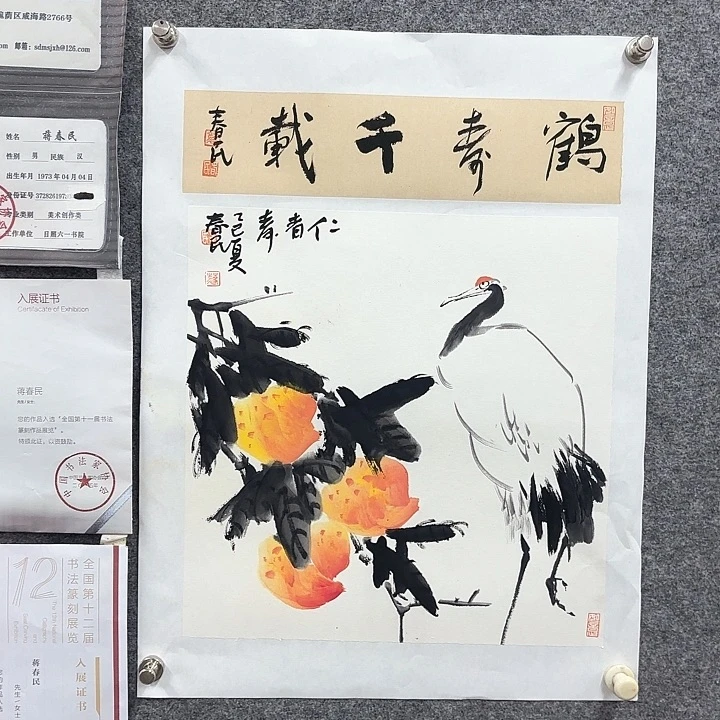 鹤寿千载
春民
仁者寿
乙巳夏
春民
荫区威海路2766号
邮箱：sdmsjxh@126.com
姓名 蒋春民
性别 男 民族 汉
出生年月 1973年04月04日
身份证号 372826197
业类别 美术创作类
工作单位 日照六一书院
入展证书
Certificate of Exhibition
蒋春民
您的作品入选“全国第十一届书法
篆刻作品展览”。
特颁此证，以资鼓励。
中国书法家协会
12
全国第十二届
书法篆刻展览
入展证书
蒋春民
先生/女士